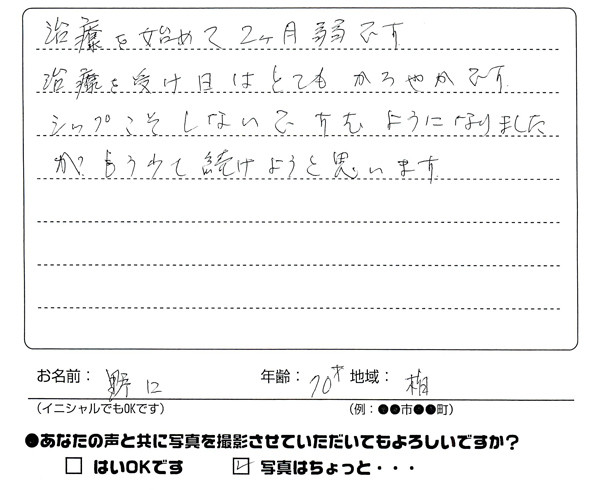 治療を始めて2ヶ月弱です
治療を受け日はとてもかろやかです
シップこそしないですむようになりました
が?もう少て続けようと思います
お名前： 野口 年齢： 70才 地域： 柏
（イニシャルでもOKです） （例：●●市●●町）
●あなたの声と共に写真を撮影させていただいてもよろしいですか？
□ はいOKです ☑ 写真はちょっと・・・